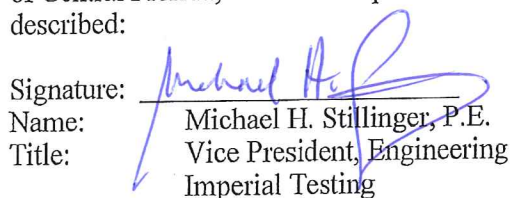 described:
Signature: Michael H.
Name: Michael H. Stillinger, P.E.
Title: Vice President, Engineering
Imperial Testing